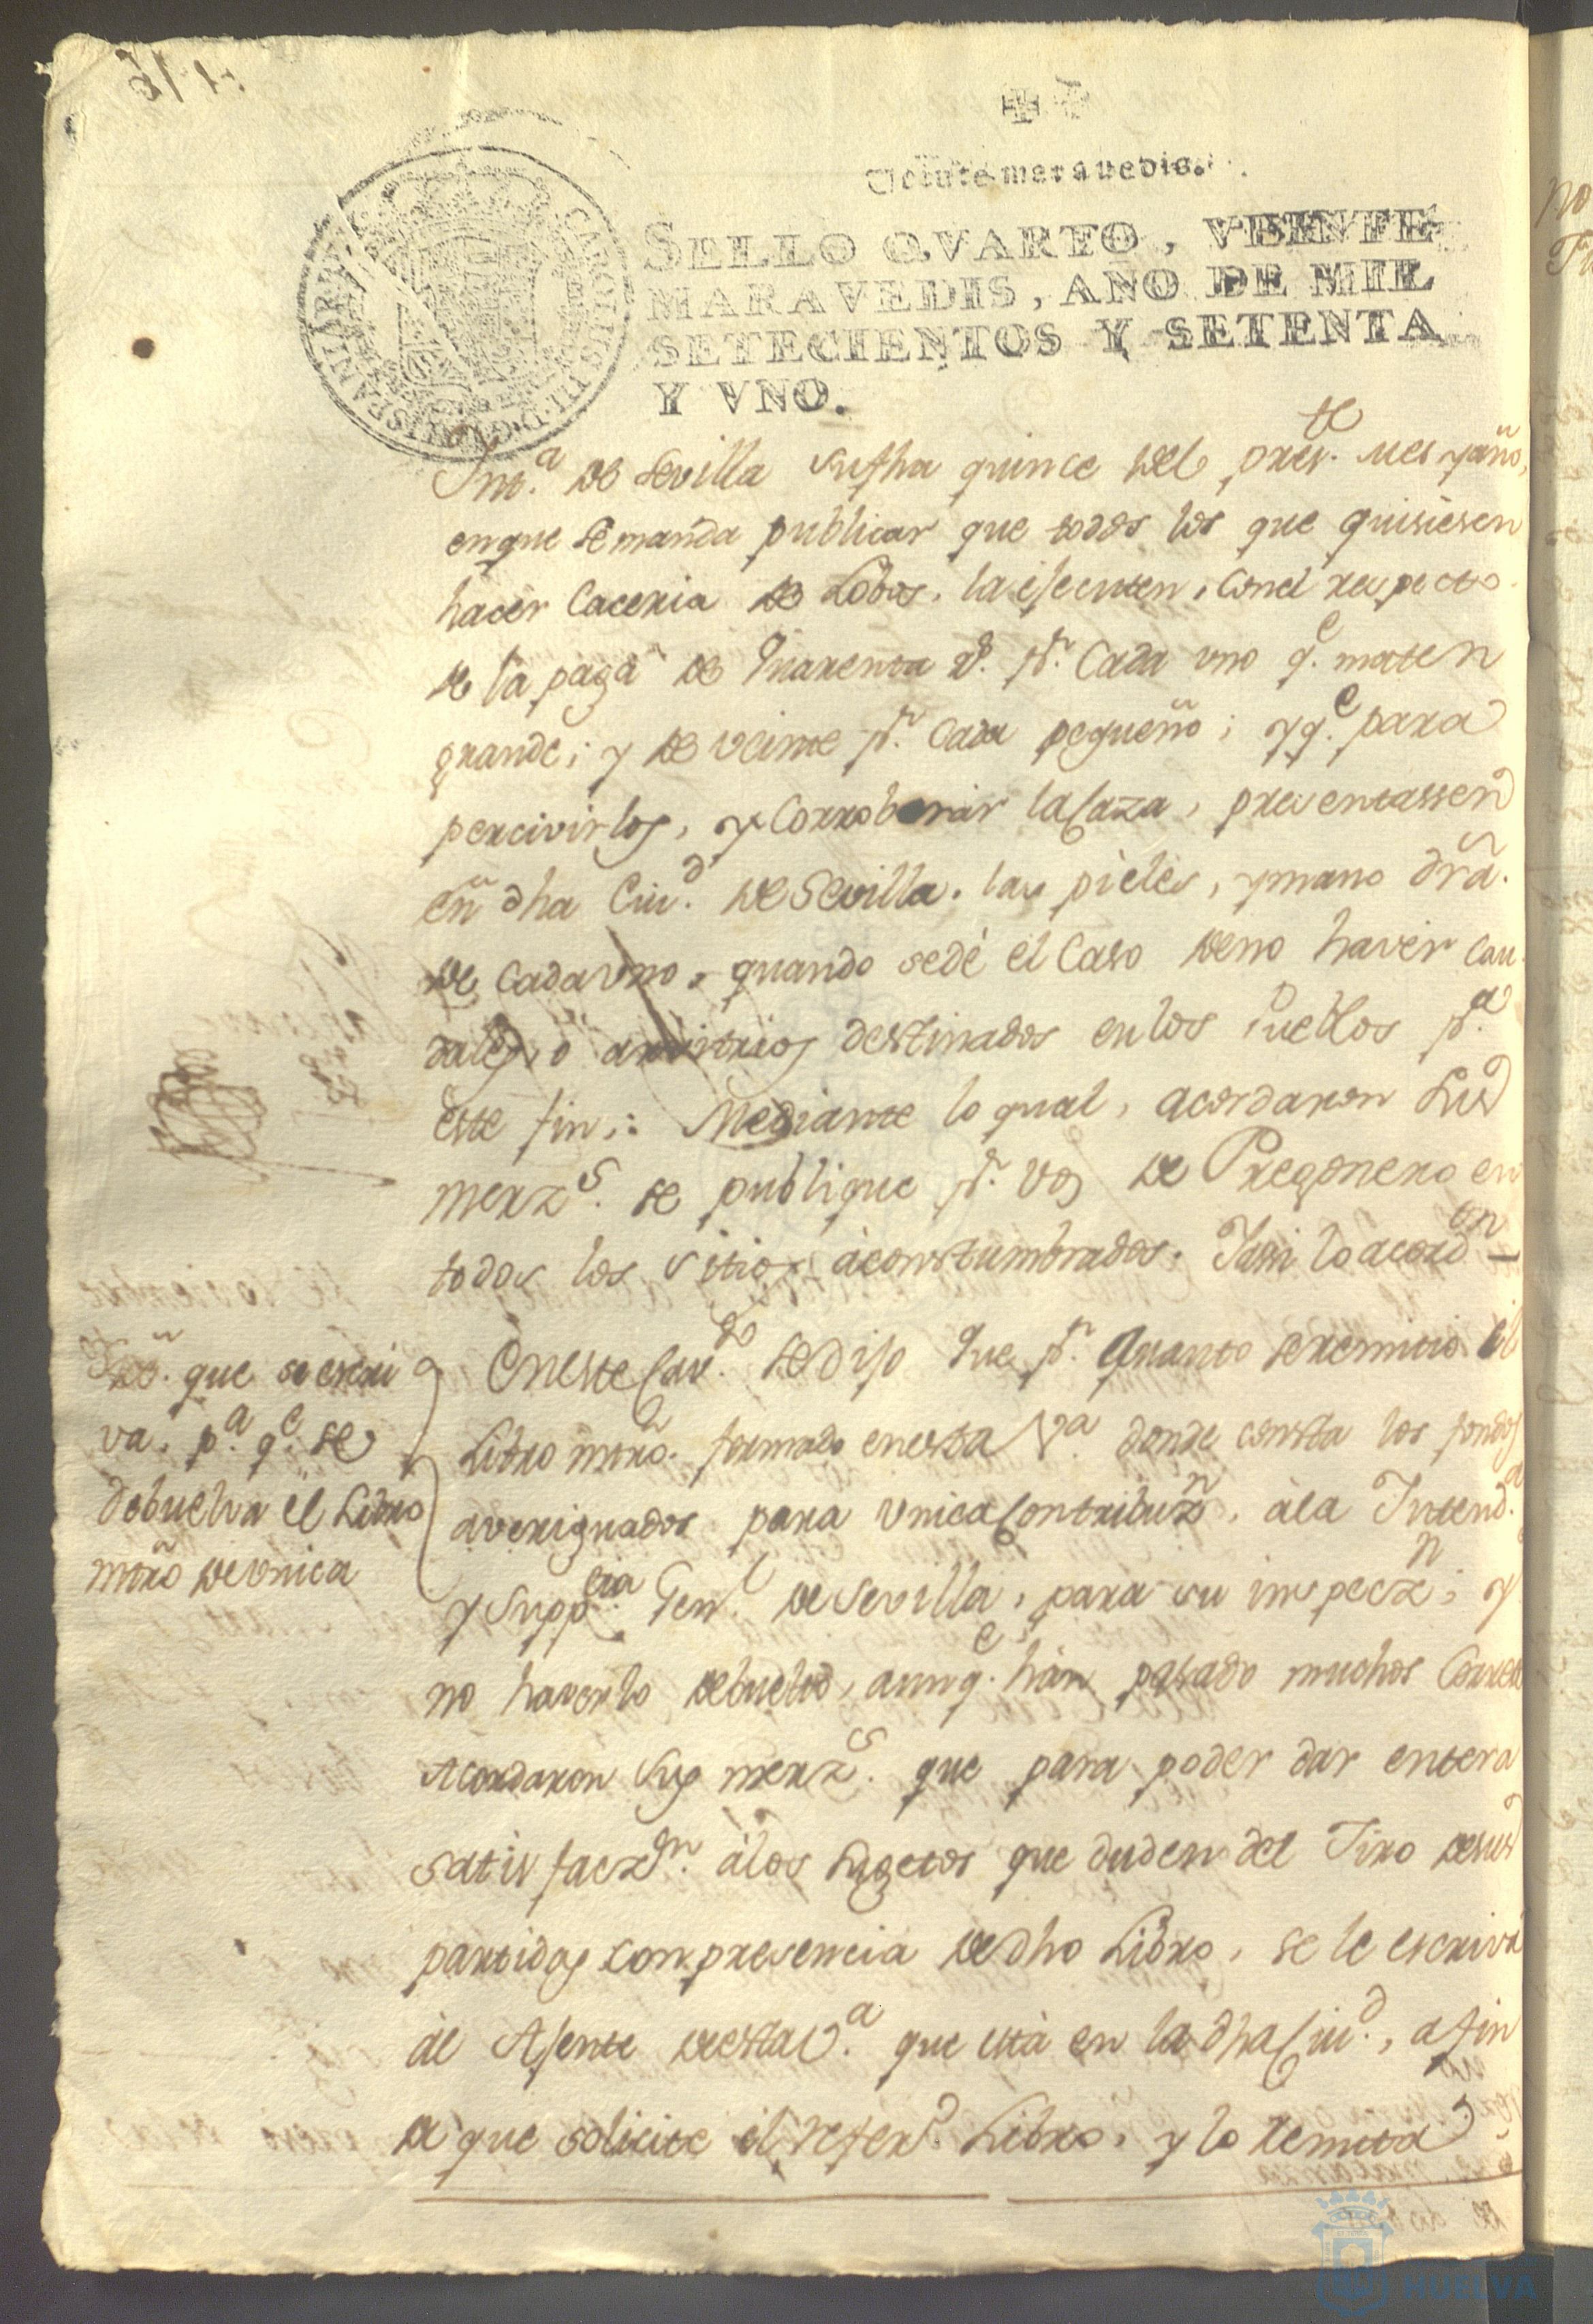 Veinte maravedis.
SELLO QVARTO, VEINTE
MARAVEDIS, AÑO DE MIL
SETECIENTOS Y SETENTA
Y VNO.
CAROLUS III D G HISPANIAR REX
Int.ª de Sevilla su fha quince del pres.te mes y año,
en que se manda publicar que todos los que quisiesen
hacer Caceria de Lobos, la ejecuten, con el respecto
de la paga de Quarenta r.s p.r Cada uno q.e maten
grande; y de veinte p.r Cada pequeño; y q.e para
percivirlos, y Corroborar la Caza, presentassen
en dha Ciu.d de Sevilla, las pieles, y mano dra.
de cada uno, quando se dé el Caso de no haver Cau
dales, ó arvitrios destinados en los Pueblos p.a
este fin: Mediante lo qual, acordaron Sus
merz.s se publique p.r voz de Pregonero en
todos los sitios acostumbrados. Y asi lo acord.on
que se escri
va, p.a q.e se
debuelva el Libro
mro de Unica
En este Cav.do se dijo Que p.r quanto se remitió el
Libro mro. formado en esta V.a donde consta los fondos
averiguados para Unica Contribuz.n, à la Intend.a
y Supp.cia Gen.l de Sevilla, para su inspecz.n; y
no haverlo debuelto, aunq.e hán pasado muchos Correos
Acordaron Sus merz.s que para poder dar entera
satisfacz.on à los Sugetos que duden del Tiro de sus
partidas con presencia de dho Libro, se le escriva
ál Ajente de esta V.a que está en la dha Ciu.d, a fin
de que solicite el refer.do Libro, y lo remita
HUELVA